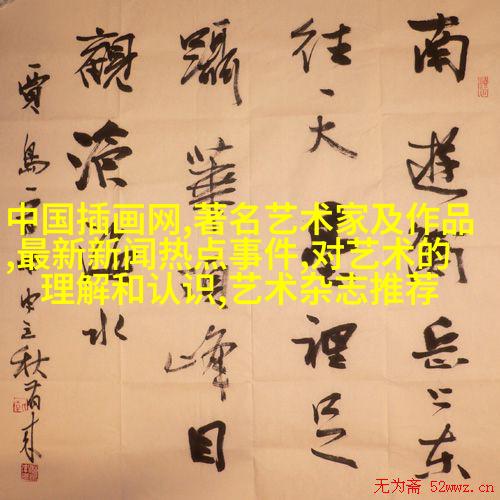 南遊衡岳上东
往天裡足
躡華頂峰目
觀滄海水
賈島一立秋
中国插画网,著名艺术家及作品
,最新新闻热点事件,对艺术的
理解和认识,艺术杂志推荐
无为斋 52wwz.cn